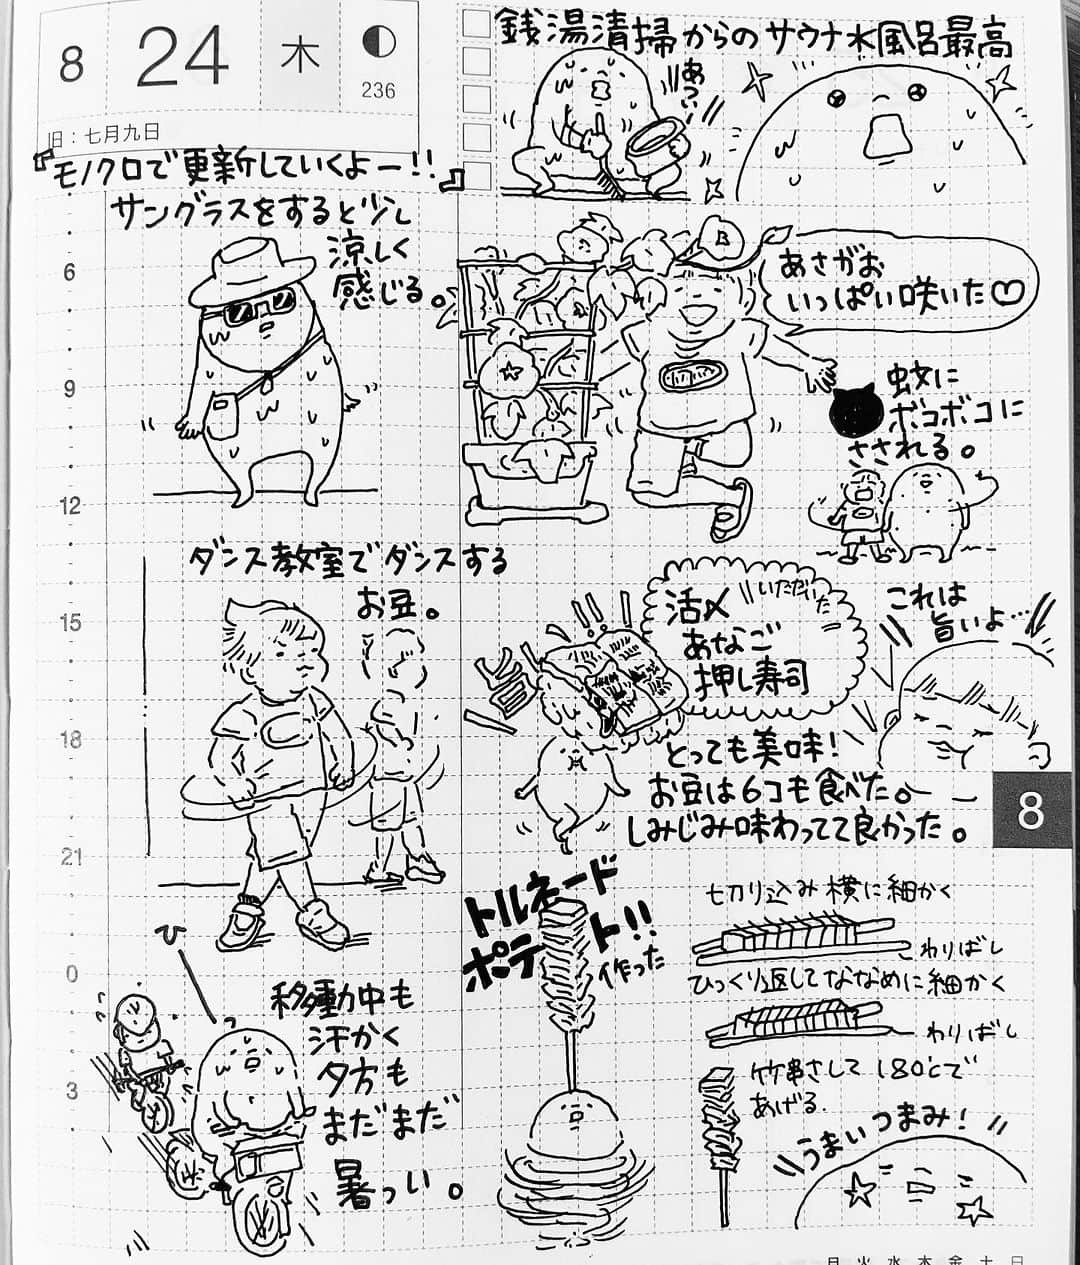 8
24
木
236
旧：七月九日
『モノクロで更新していくよー!!』
サングラスをすると少し
涼しく
感じる。
銭湯清掃からのサウナ水風呂最高
あつい
B
あさがお
いっぱい咲いた♡
蚊に
ボコボコに
さされる。
6
9
12
15
18
21
0
3
ダンス教室でダンスする
お豆。
旨!!
いただいた
活〆
あなご
押し寿司
これは
旨いよ…
とっても美味!
お豆は6コも食べた。
しみじみ味わってて良かった。
8
ひ
移動中も
汗かく
夕方も
まだまだ
暑っい。
トルネード
ポテト!!
作った
切り込み横に細かく
わりばし
ひっくり返してななめに細かく
わりばし
竹串さして180℃で
あげる.
うまいつまみ!
月 火 水 木 金 土 日